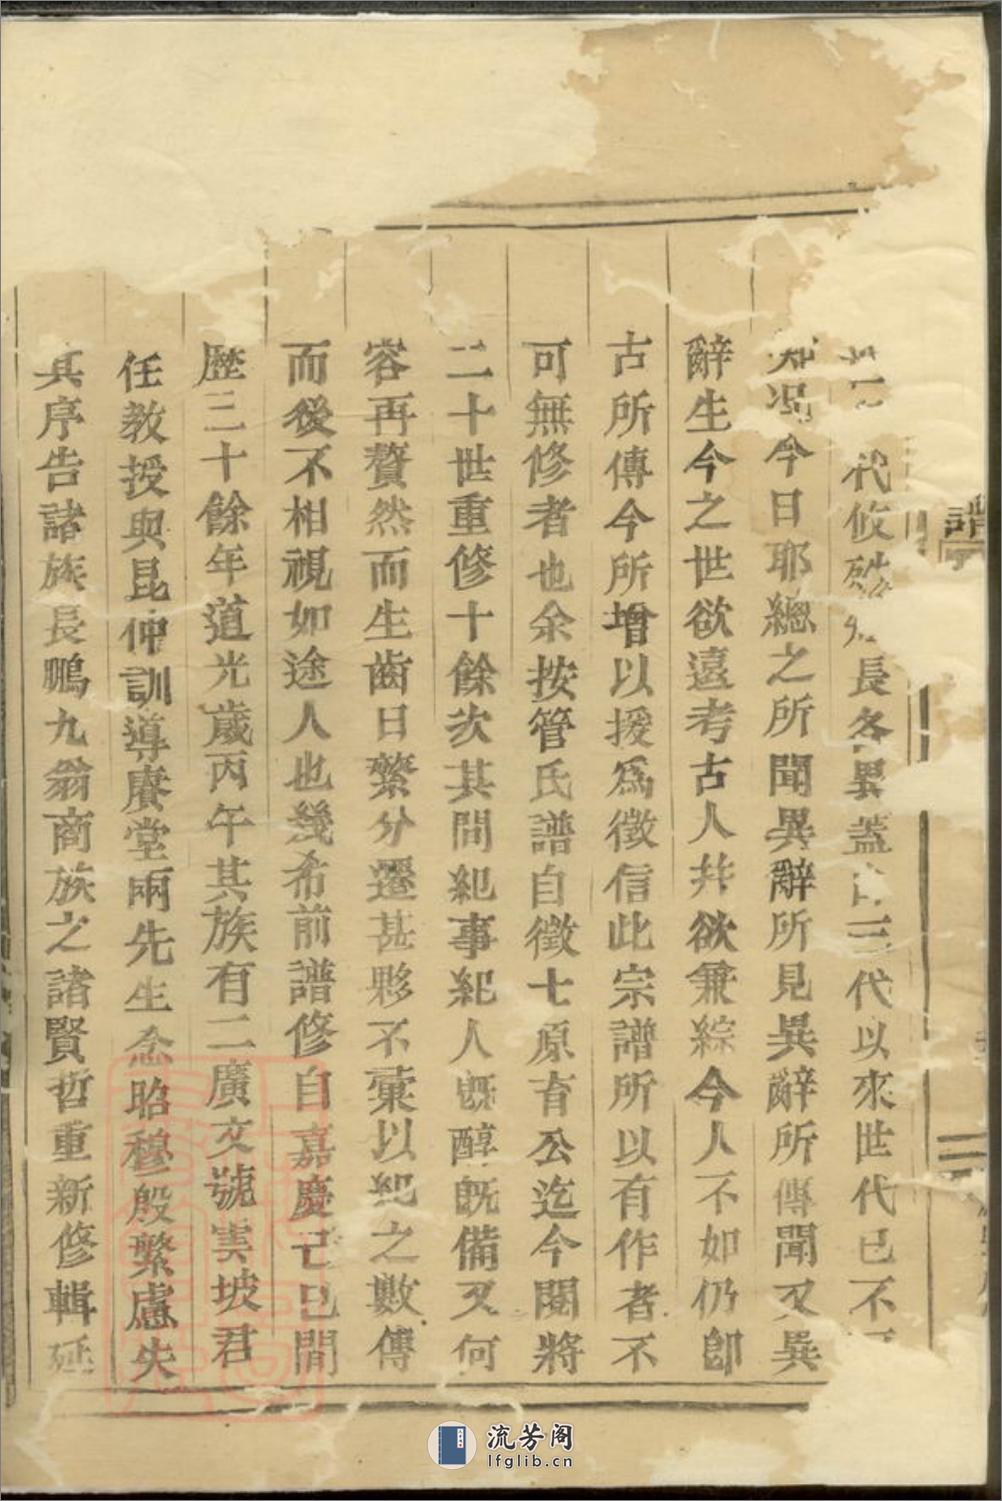 代攸殊
長各異蓋
三代以來世代已不
況今日耶總之所聞異辭所見異辭所傳聞又異
辭生今之世欲遠考古人井欲兼綜今人不如仍卽
古所傳今所增以援爲徵信此宗譜所以有作者不
可無修者也余按管氏譜自徵七原育公迄今閱將
二十世重修十餘次其間紀事紀人旣醇旣備又何
容再贅然而生齒日繁分遷甚夥不彙以紀之數傳
而後不相視如途人也幾希前譜修自嘉慶己巳間
歷三十餘年道光歲丙午其族有二廣文號雲坡君
任教授與昆仲訓導賡堂兩先生念昭穆殷繁慮失
其序告諸族長鵬九翁商族之諸賢哲重新修輯延
譜
流芳阁
lfglib.cn